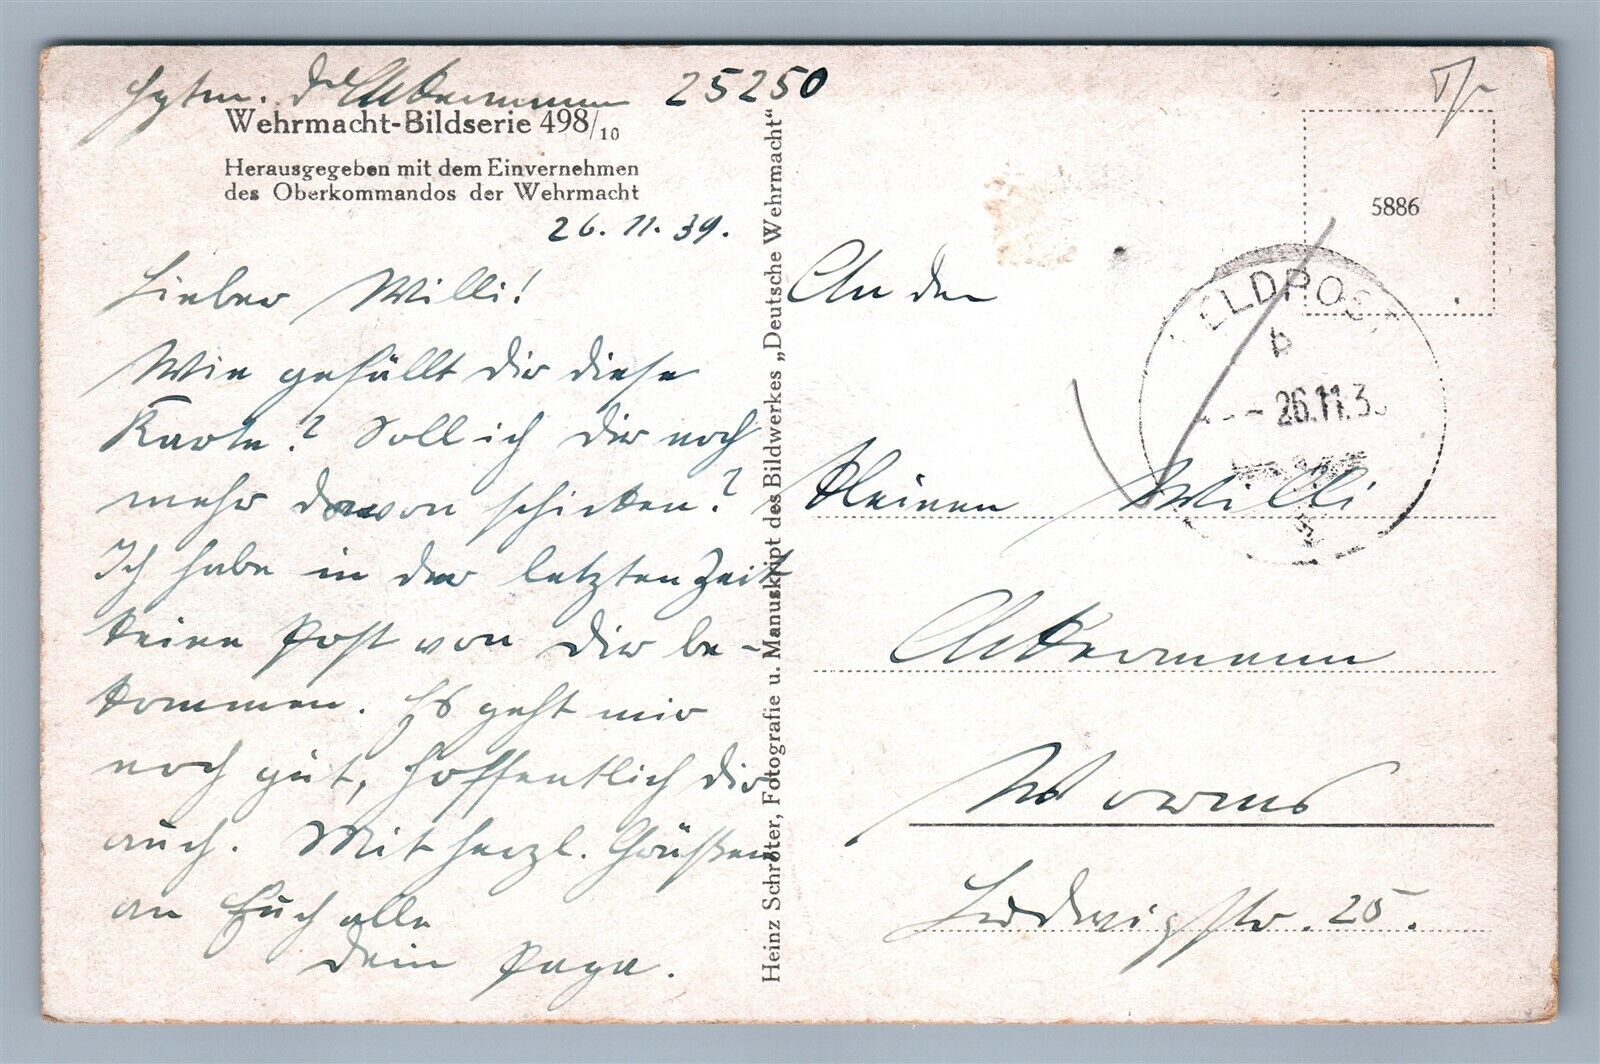 Hptm. Dr. Ackermann 25250
Wehrmacht-Bildserie 498/10
Herausgegeben mit dem Einvernehmen
des Oberkommandos der Wehrmacht
26.11.39.
Lieber Willi!
Wie gefällt dir diese
Karte? Soll ich dir noch
mehr davon schicken?
Ich habe in der letzten Zeit
keine Post von dir be-
kommen. Es geht mir
noch gut, hoffentlich dir
auch. Mit herzl. Grüßen
an Euch alle
Dein Papa.
Heinz Schröter, Fotografie u. Manuskript des Bildwerkes „Deutsche Wehrmacht"
5886
FELDPOST
b
26.11.3
An den
kleinen Willi
Ackermann
Worms
Ludwigstr. 25.